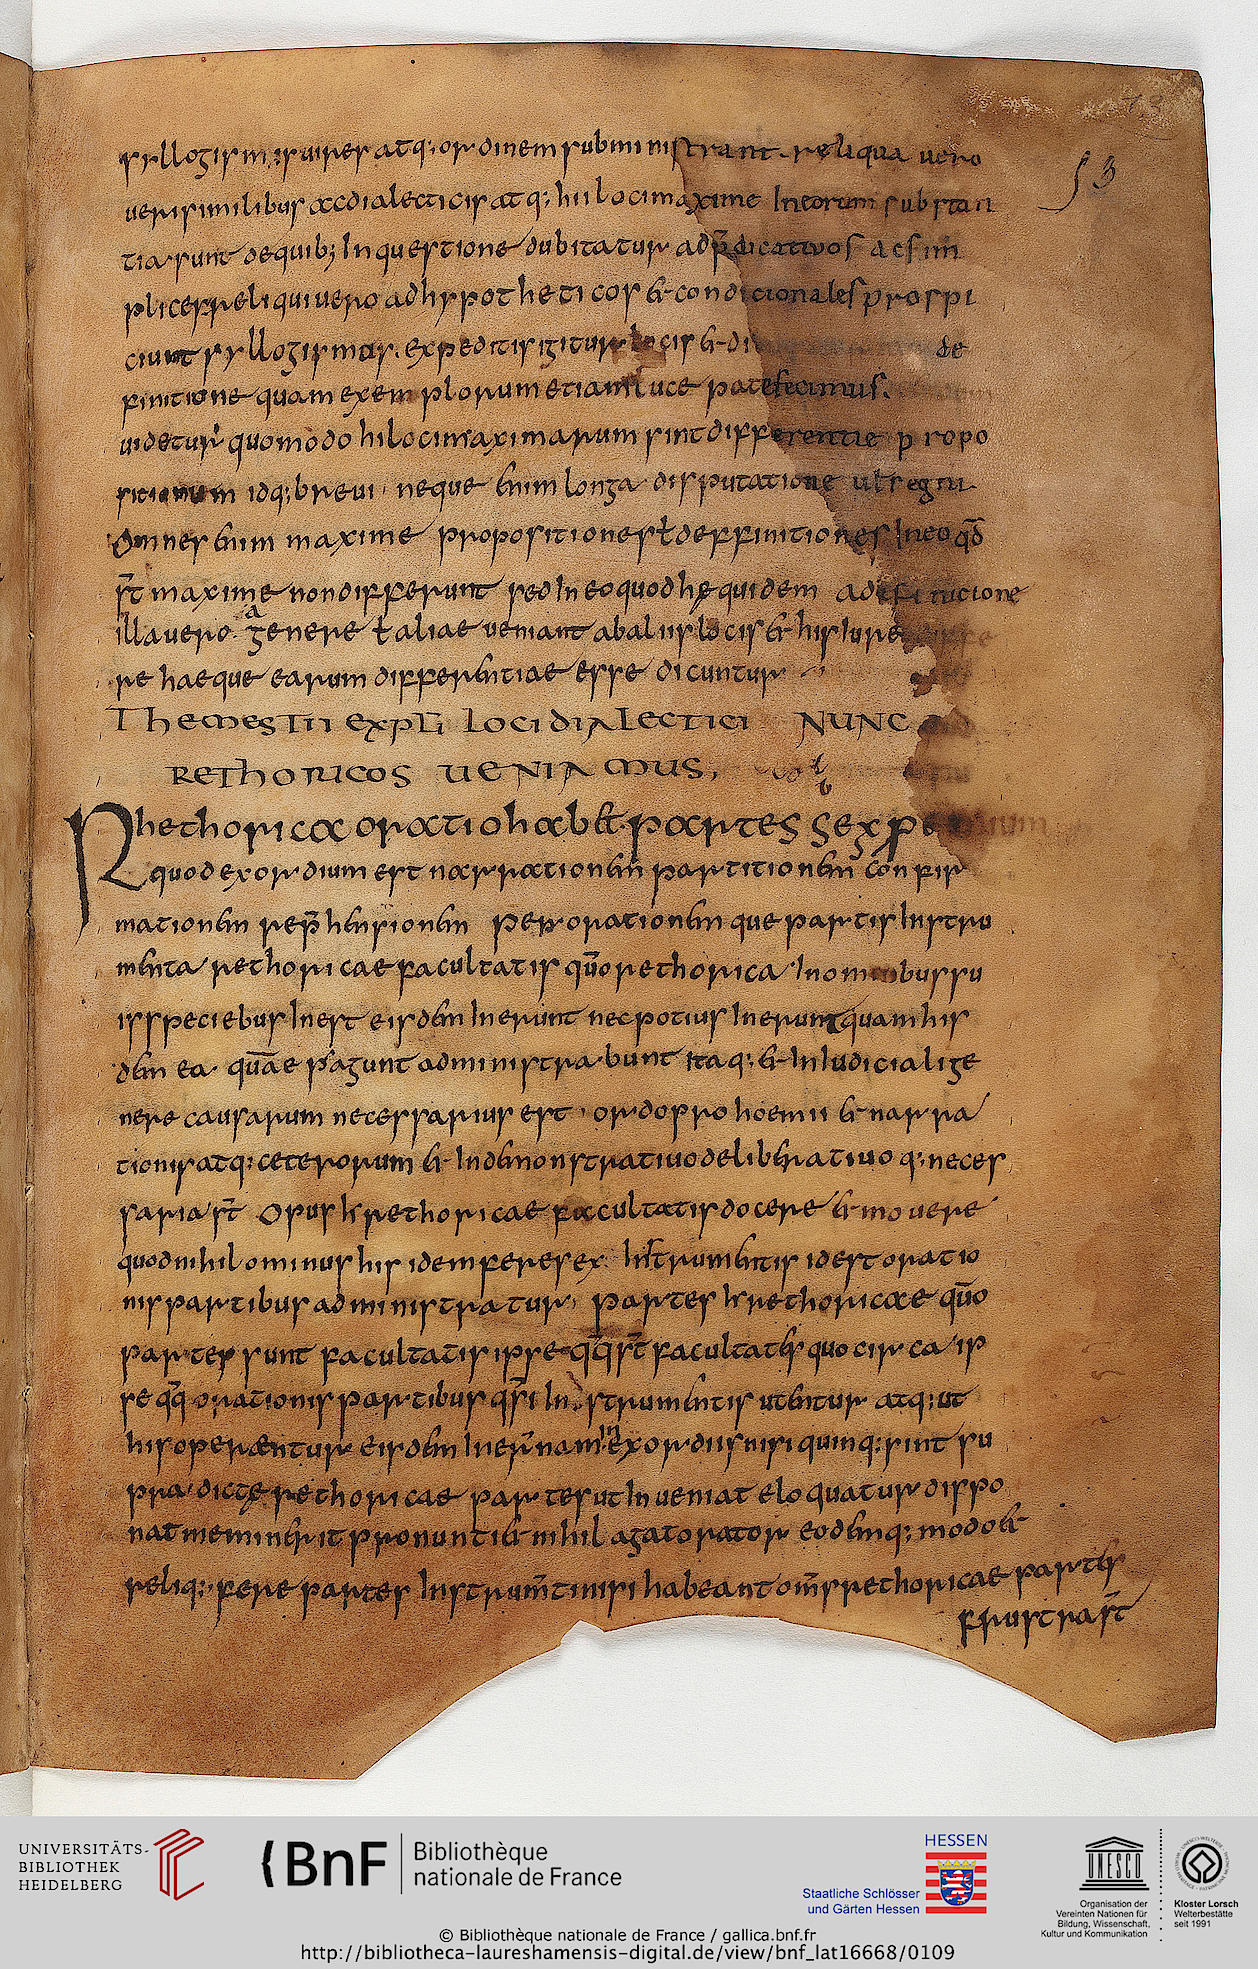 syllogismis vires atq; ordinem subministrant reliqua vero
verisimilibus ac dialecticis atq; hii loci maxime in eorum substan
tia sunt de quib; in questione dubitatur ad p̄dicativos ac sim
plices reliqui vero ad hypotheticos & condicionales prospi
ciunt syllogismos. expeditis igitur locis & de
finitione quam exemplorum etiam luce patefecimus.
videtur quomodo hi loci maximarum sint differentie propo
sitionum idq; brevi neque enim longa disputatione
Omnes enim maxime propositiones ł deffinitiones in eo qđ
sr̄t maxime non differunt sed in eo quod hę quidem a definicione
illa vero a genere ł aliae veniant ab aliis locis & his iure
re haeque earum differentiae esse dicuntur
Themestii expl̄i loci dialectici NUNC
RETHORICOS VENIAMUS,
Rhethorica oratio hab& partes sex
quod exordium est narrationem partitionem confir
mationem rep̄hensionem perorationem que partis instru
menta rethoricae facultatis qūo rethorica in omnibus su
is speciebus inest eisdem inerunt nec potius inerunt quam his
dem ea quāe p̄agunt administrabunt itaq; & in iudiciali ge
nere causarum necessarius est ordo prohoemii & narra
tionis atq; ceterorum & in demonstrativo deliberativo q; neces
saria sr̄t Opus h̄ rethoricae facultatis docere & movere
quod nihilominus hisidem fere sex instrumentis id est oratio
nis partibus administratur, partes h̄ rethoricae qūo
partes sunt facultatis ipse q̄q̄ sr̄t facultates quocirca ip
se q̄q̄ orationis partibus qs̄i instrumentis utentur atq; ut
his operentur eisdem iner̄ nam in exordiis nisi quinq; sint su
pra dictę rethoricae partes ut inveniat eloquatur dispo
nat meminerit pronunti& nihil agat orator eodemq; modo &
reliq; fere partes instrum̄ti nisi habeant om̄s rethoricae partes
frustra sr̄t
53
UNIVERSITÄTS-
BIBLIOTHEK
HEIDELBERG
BnF
Bibliothèque
nationale de France
HESSEN
Staatliche Schlösser
und Gärten Hessen
UNESCO
Organisation der
Vereinten Nationen für
Bildung, Wissenschaft,
Kultur und Kommunikation
Kloster Lorsch
Welterbestätte
seit 1991
© Bibliothèque nationale de France / gallica.bnf.fr
http://bibliotheca-laureshamensis-digital.de/view/bnf_lat16668/0109